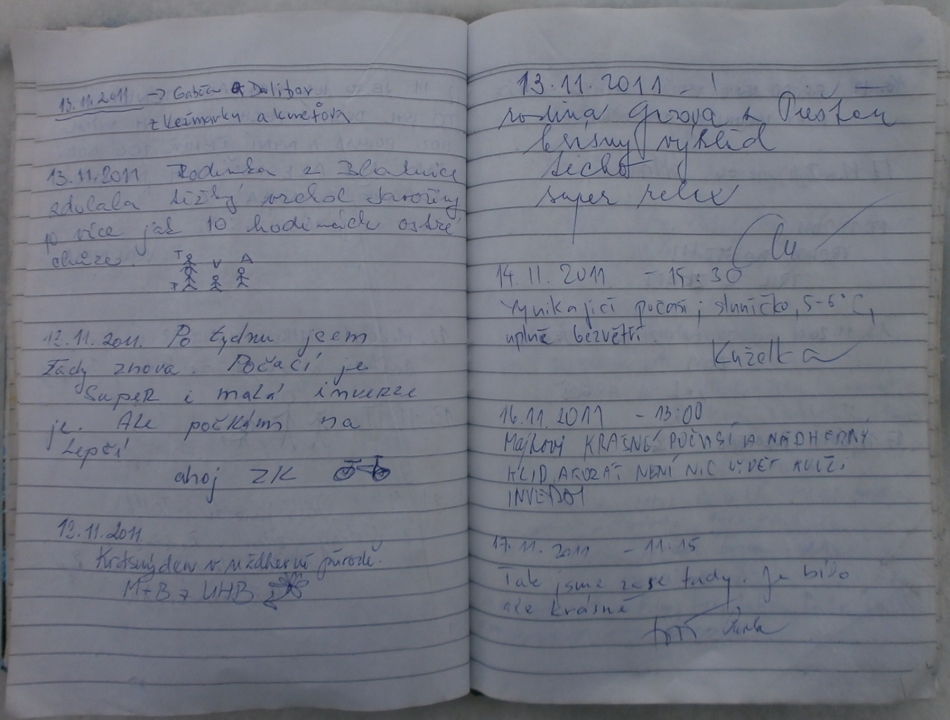 13.11.2011 → Dalibor
z Kežmarku a
13.11.2011 Rodinka z Blatnice
zdolala těžký vrchol Javořiny
po více jak 10 hodinách ostré
chůze.
T V A
12.11.2011. Po týdnu jsem
tády znova. Počací je
super i malá inverze
je. Ale počkám na
lepčí
ahoj ZK
13.11.2011
Krásný den v nádherné přírodě.
M+B z UHB
13.11.2011 !
rodina a
krásný výhled
ticho
super relax
14.11.2011 - 15:30
Vynikající počasí, sluníčko, 5-6°C,
úplné bezvětří.
Kuželka
16.11.2011 - 13:00
KRÁSNÉ POČASÍ A NÁDHERNÝ
KLID. AKORÁT NENÍ NIC VIDĚT KVŮLI
INVERZI
17.11.2011 - 11:15
Tak jsme zase tady. Je bílo
ale krásně